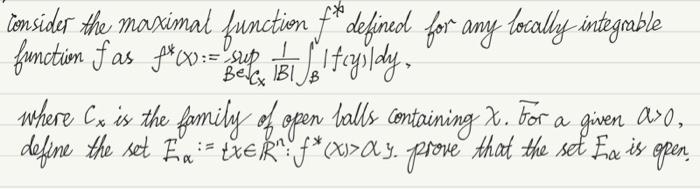 Consider the maximal function f* defined for any locally integrable
function f as f*(x) := sup_{B∈C_x} 1/|B| ∫_B |f(y)|dy,
where C_x is the family of open balls containing x. For a given α>0,
define the set E_α := {x∈ℝⁿ: f*(x)>α}. prove that the set E_α is open.